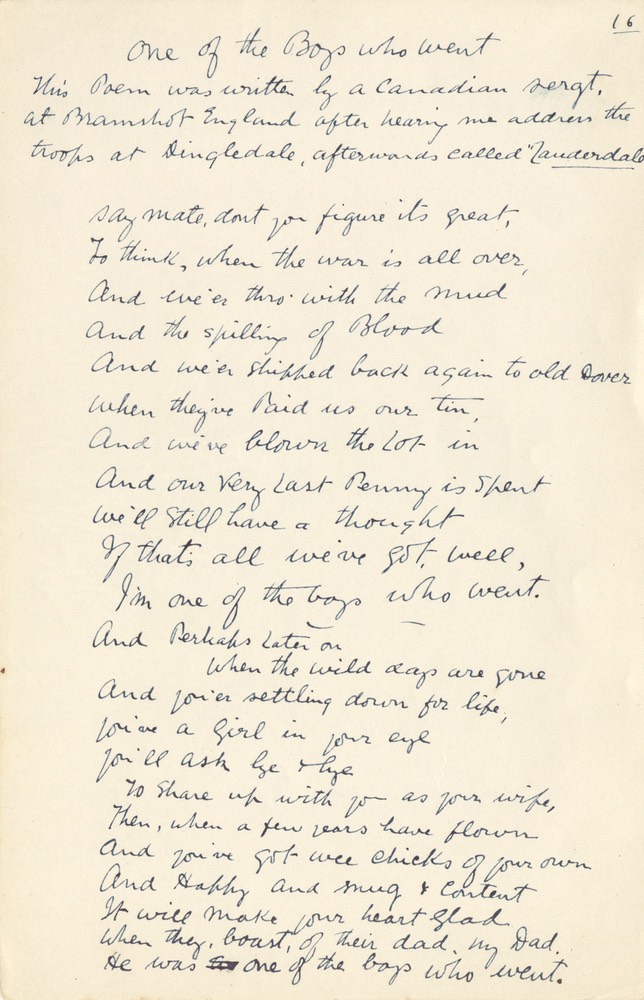 16
One of the Boys who went
This Poem was written by a Canadian sergt.
at Bramshot England after hearing me address the
troops at Dingledale, afterwards called "Lauderdale
Say mate, dont you figure its great,
To think, when the war is all over,
And we'er thro' with the mud
And the spilling of Blood
And we'er shipped back again to old Dover
When they've Paid us our tin,
And we've blown the Lot in
And our Very Last Penny is Spent
We'll Still have a thought
If that's all we've got, well,
I'm one of the boys who went.
And Perhaps Later on
When the wild days are gone
And you'er settling down for life,
You've a Girl in your eye
you'll ask bye & bye
To Share up with you as your wife,
Then, when a few years have flown
And you've got wee chicks of your own
And Happy and snug & Content
It will make your heart Glad
When they, boast, of their dad, my Dad.
He was one of the boys who went.